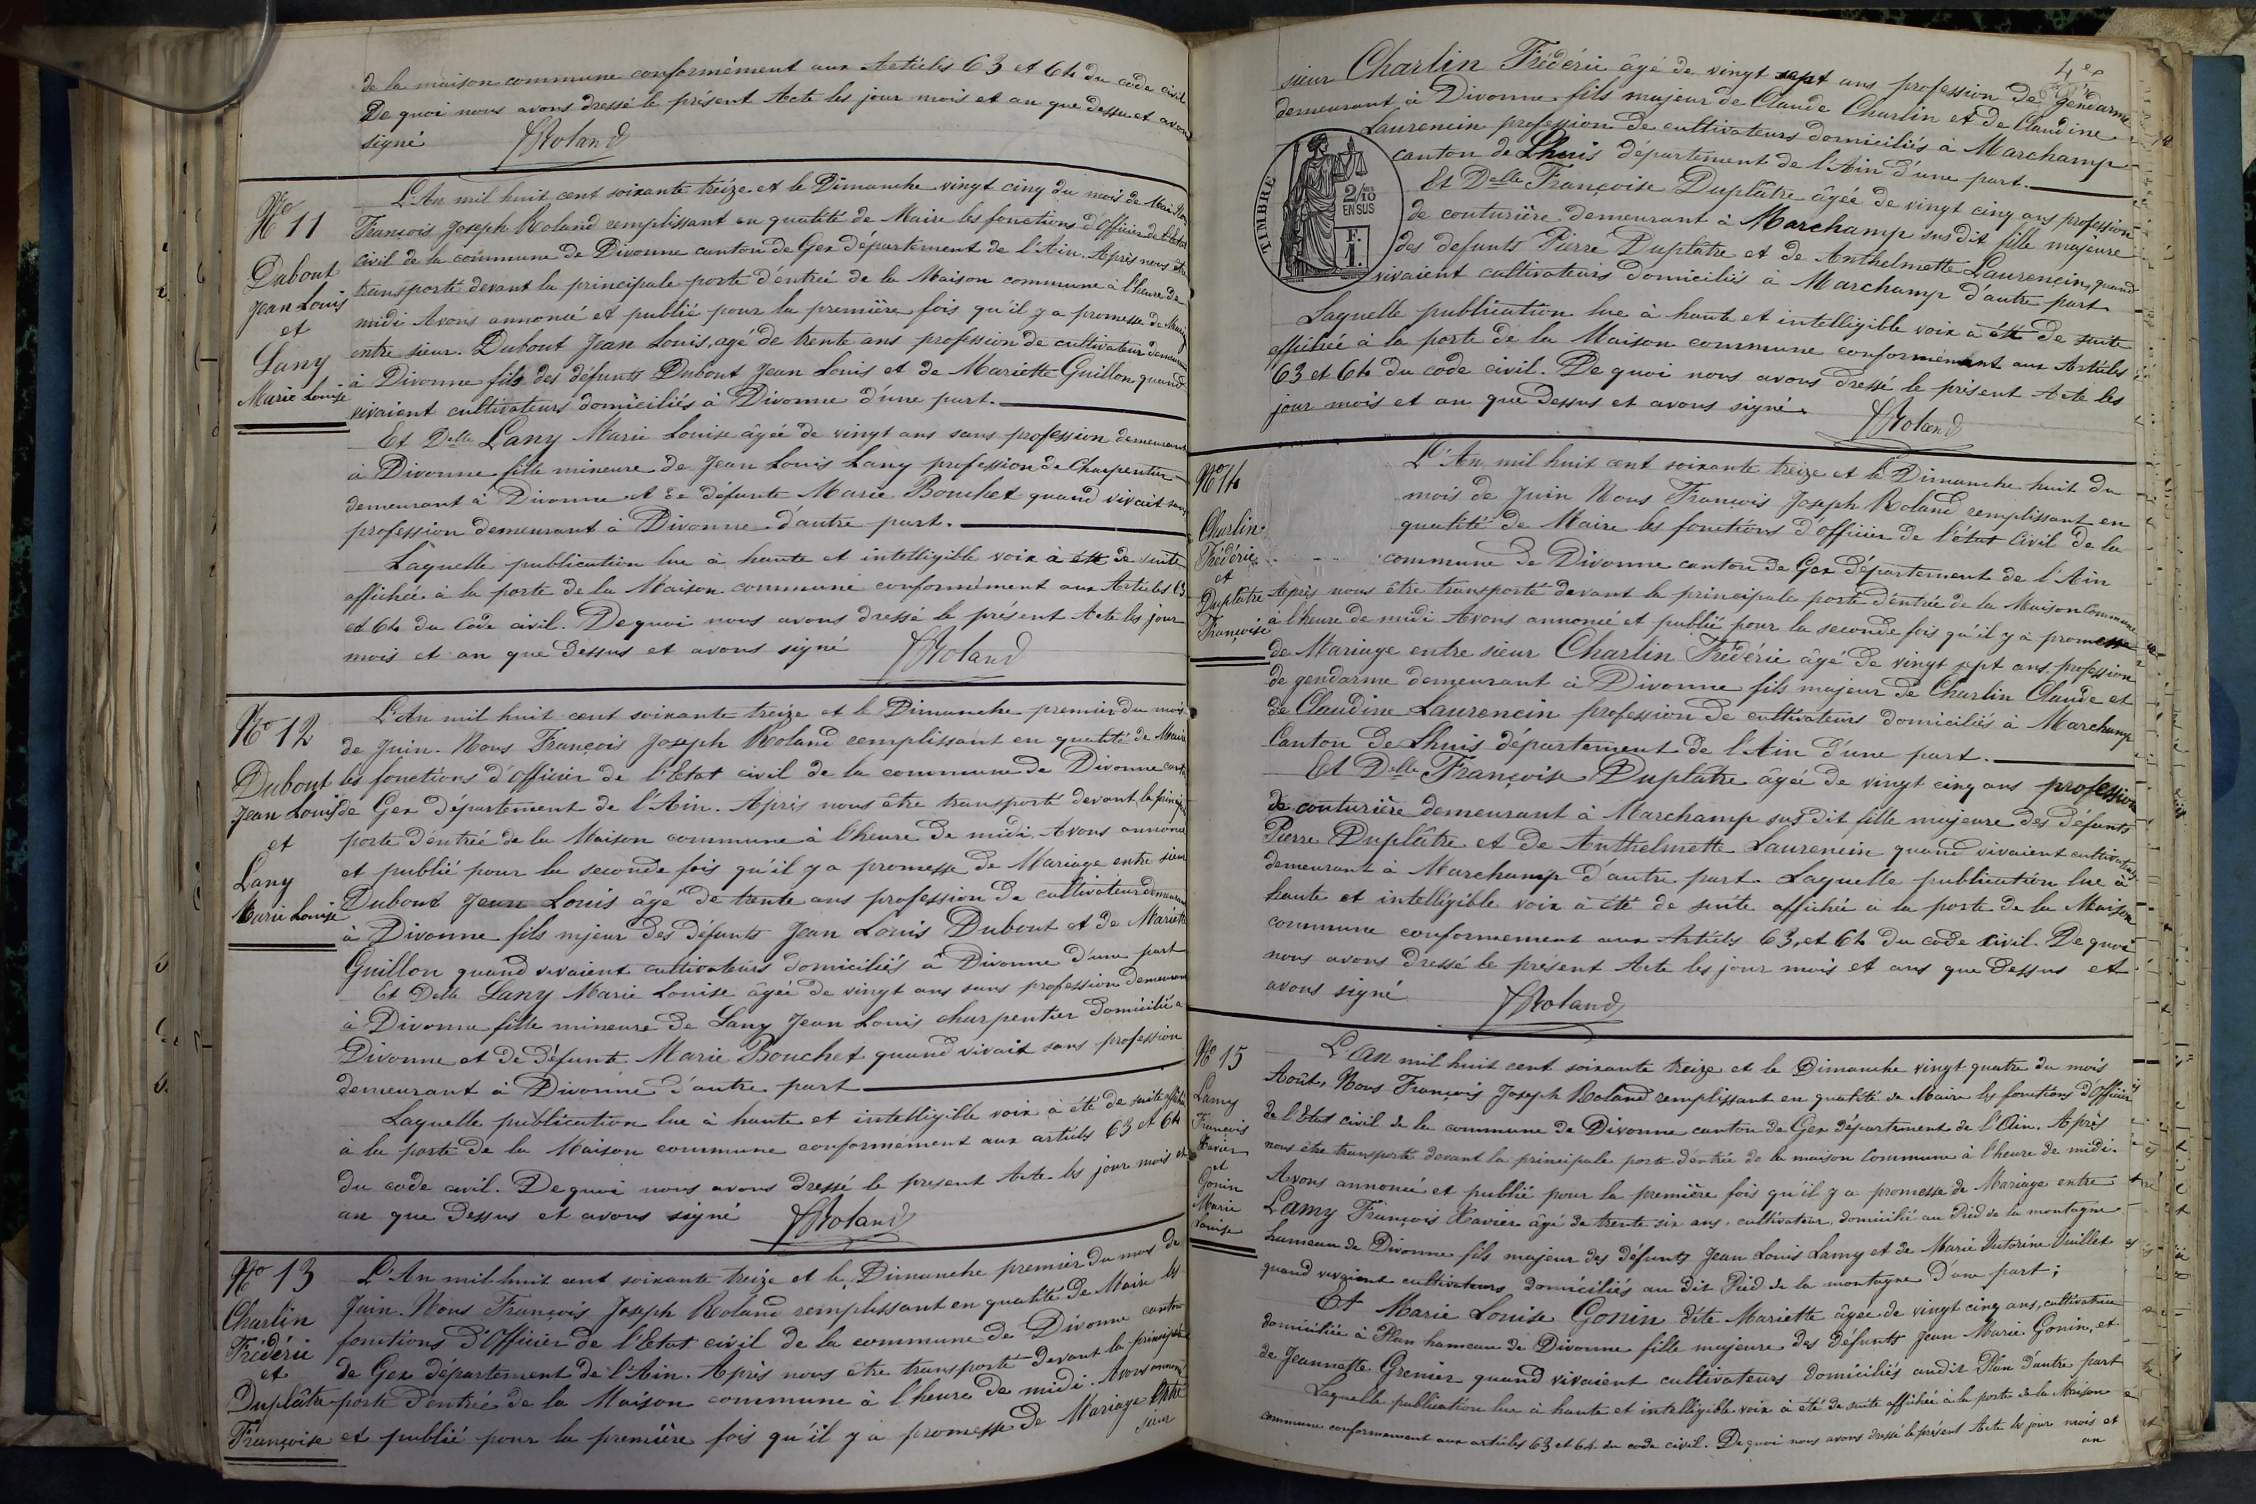 de la maison commune conformément aux Articles 63 et 64 du code civil
De quoi nous avons dressé le présent Acte les jour mois et an que dessus et avons
signé FRoland
No 11
Dubout
Jean Louis
et
Lany
Marie Louise
L'An mil huit cent soixante treize et le Dimanche vingt cinq du mois de Mai Nous
François Joseph Roland remplissant en qualité de Maire les fonctions d'Officier de l'Etat
civil de la commune de Divonne canton de Gex département de l'Ain. Après nous être
transporté devant la principale porte d'entrée de la Maison commune à l'heure de
midi Avons annoncé et publié pour la première fois qu'il y a promesse de Mariage
entre sieur Dubout Jean Louis, agé de trente ans profession de cultivateur demeurant
à Divonne fils des défunts Dubout Jean Louis et de Mariette Guillon quand
vivaient cultivateurs domiciliés à Divonne d'une part.
Et Delle Lany Marie Louise âgée de vingt ans sans profession demeurant
à Divonne fille mineure de Jean Louis Lany profession de Charpentier
demeurant à Divonne et de défunte Marie Bouchet quand vivait sans
profession demeurant à Divonne d'autre part.
Laquelle publication lue à haute et intelligible voix à été de suite
affichée à la porte de la Maison commune conformément aux Articles 63
et 64 du Code civil. De quoi nous avons dressé le présent Acte les jour
mois et an que dessus et avons signé FRoland
No 12
Dubout
Jean Louis
et
Lany
Marie Louise
L'An mil huit cent soixante treize et le Dimanche premier du mois
de Juin. Nous François Joseph Roland remplissant en qualité de Maire
les fonctions d'Officier de l'Etat civil de la commune de Divonne canton
de Gex département de l'Ain. Après nous être transporté devant la principale
porte d'entrée de la Maison commune à l'heure de midi Avons annoncé
et publié pour la seconde fois qu'il y a promesse de Mariage entre sieur
Dubout Jean Louis âgé de trente ans profession de cultivateur demeurant
à Divonne fils mjeur des défunts Jean Louis Dubout et de Mariette
Guillon quand vivaient cultivateurs domiciliés à Divonne d'une part
Et Delle Lany Marie Louise âgée de vingt ans sans profession demeurant
à Divonne fille mineure de Lany Jean Louis charpentier domicilié à
Divonne et de défunte Marie Bouchet quand vivait sans profession
demeurant à Divonne d'autre part
Laquelle publication lue à haute et intelligible voix à été de suite affichée
à la porte de la Maison commune conformément aux articles 63 et 64
du code civil. De quoi nous avons dressé le present Acte les jour mois et
an que dessus et avons signé FRoland
No 13
Charlin
Frédéric
et
Duplâtre
Françoise
L'An mil huit cent soixante treize et le Dimanche premier du mois de
Juin. Nous François Joseph Roland remplissant en qualité de Maire les
fonctions d'Officier de l'Etat civil de la commune de Divonne canton
de Gex département de l'Ain. Après nous être transporté devant la principale
porte d'entrée de la Maison commune à l'heure de midi. Avons annoncé
et publié pour la première fois qu'il y a promesse de Mariage Entre
sieur
4e
sieur Charlin Frédéric âgé de vingt sept ans profession de gendarme
demeurant à Divonne fils majeur de Claude Charlin et de Claudine
Laurencin profession de cultivateurs domiciliés à Marchamp
canton de Lhuis département de l'Ain d'une part.
TIMBRE
2/10
EN SUS
F.
1.
Et Delle Françoise Duplâtre âgée de vingt cinq ans profession
de couturière demeurant à Marchamp sus dit fille majeure
des defunts Pierre Duplatre et de Anthelmette Laurencin, quand
vivaient cultivateurs domiciliés à Marchamp d'autre part
Laquelle publication lue à haute et intelligible voix à été de suite
affichée à la porte de la Maison commune conformément aux Articles
63 et 64 du code civil. De quoi nous avons dressé le présent Acte les
jour mois et an que dessus et avons signé. FRoland
No 14
Charlin
Frédéric
et
Duplâtre
Françoise
L'An mil huit cent soixante treize et le Dimanche huit du
mois de Juin Nous François Joseph Roland remplissant en
qualité de Maire les fonctions d'officier de l'état Civil de la
commune de Divonne canton de Gex Département de l'Ain
Après nous être transporté devant la principale porte d'entrée de la Maison Commune
à l'heure de midi Avons annoncé et publié pour la seconde fois qu'il y a promesse
de Mariage entre sieur Charlin Frédéric âgé de vingt sept ans profession
de gendarme demeurant à Divonne fils majeur de Charlin Claude et
de Claudine Laurencin profession de cultivateurs domiciliés à Marchamp
Canton de Lhuis département de l'Ain d'une part.
Et Delle Françoise Duplâtre âgée de vingt cinq ans profession
de couturière demeurant à Marchamp sus dit fille majeure des défunts
Pierre Duplâtre et de Anthelmette Laurencin quand vivaient cultivateurs
demeurant à Marchamp d'autre part. Laquelle publication lue à
haute et intelligible voix à été de suite affichée à la porte de la Maison
commune conformement aux Articles 63, et 64 du code civil. De quoi
nous avons dressé le présent Acte les jour mois et ans que dessus et
avons signé FRoland
No 15
Lamy
François
Xavier
et
Gonin
Marie
Louise
L'an mil huit cent soixante treize et le Dimanche vingt quatre du mois
Août, Nous François Joseph Roland remplissant en qualité de Maire les fonctions d'Officier
de l'Etat civil de la commune de Divonne canton de Gex département de l'Ain. Après
nous être transporté devant la principale porte d'entrée de la maison Commune à l'heure de midi.
Avons annoncé et publié pour la première fois qu'il y a promesse de Mariage entre
Lamy François Xavier âgé de trente six ans, cultivateur, domicilié au Pied de la montagne
hameau de Divonne fils majeur des défunts Jean Louis Lamy et de Marie Vuillet
quand vivaient cultivateurs domiciliés au dit Pied de la montagne D'une part;
Et Marie Louise Gonin dite Mariette âgée de vingt cinq ans, cultivatrice
domiciliée à Plan hameau de Divonne fille majeure des défunts Jean Marie Gonin, et
de Jeannette Grenier quand vivaient cultivateurs domiciliés audit Plan d'autre part
Laquelle publication lue à haute et intelligible voix à été de suite affichée à la porte de la Maison
commune conformement aux articles 63 et 64 du code civil. De quoi nous avons dressé le présent Acte les jour mois et
an